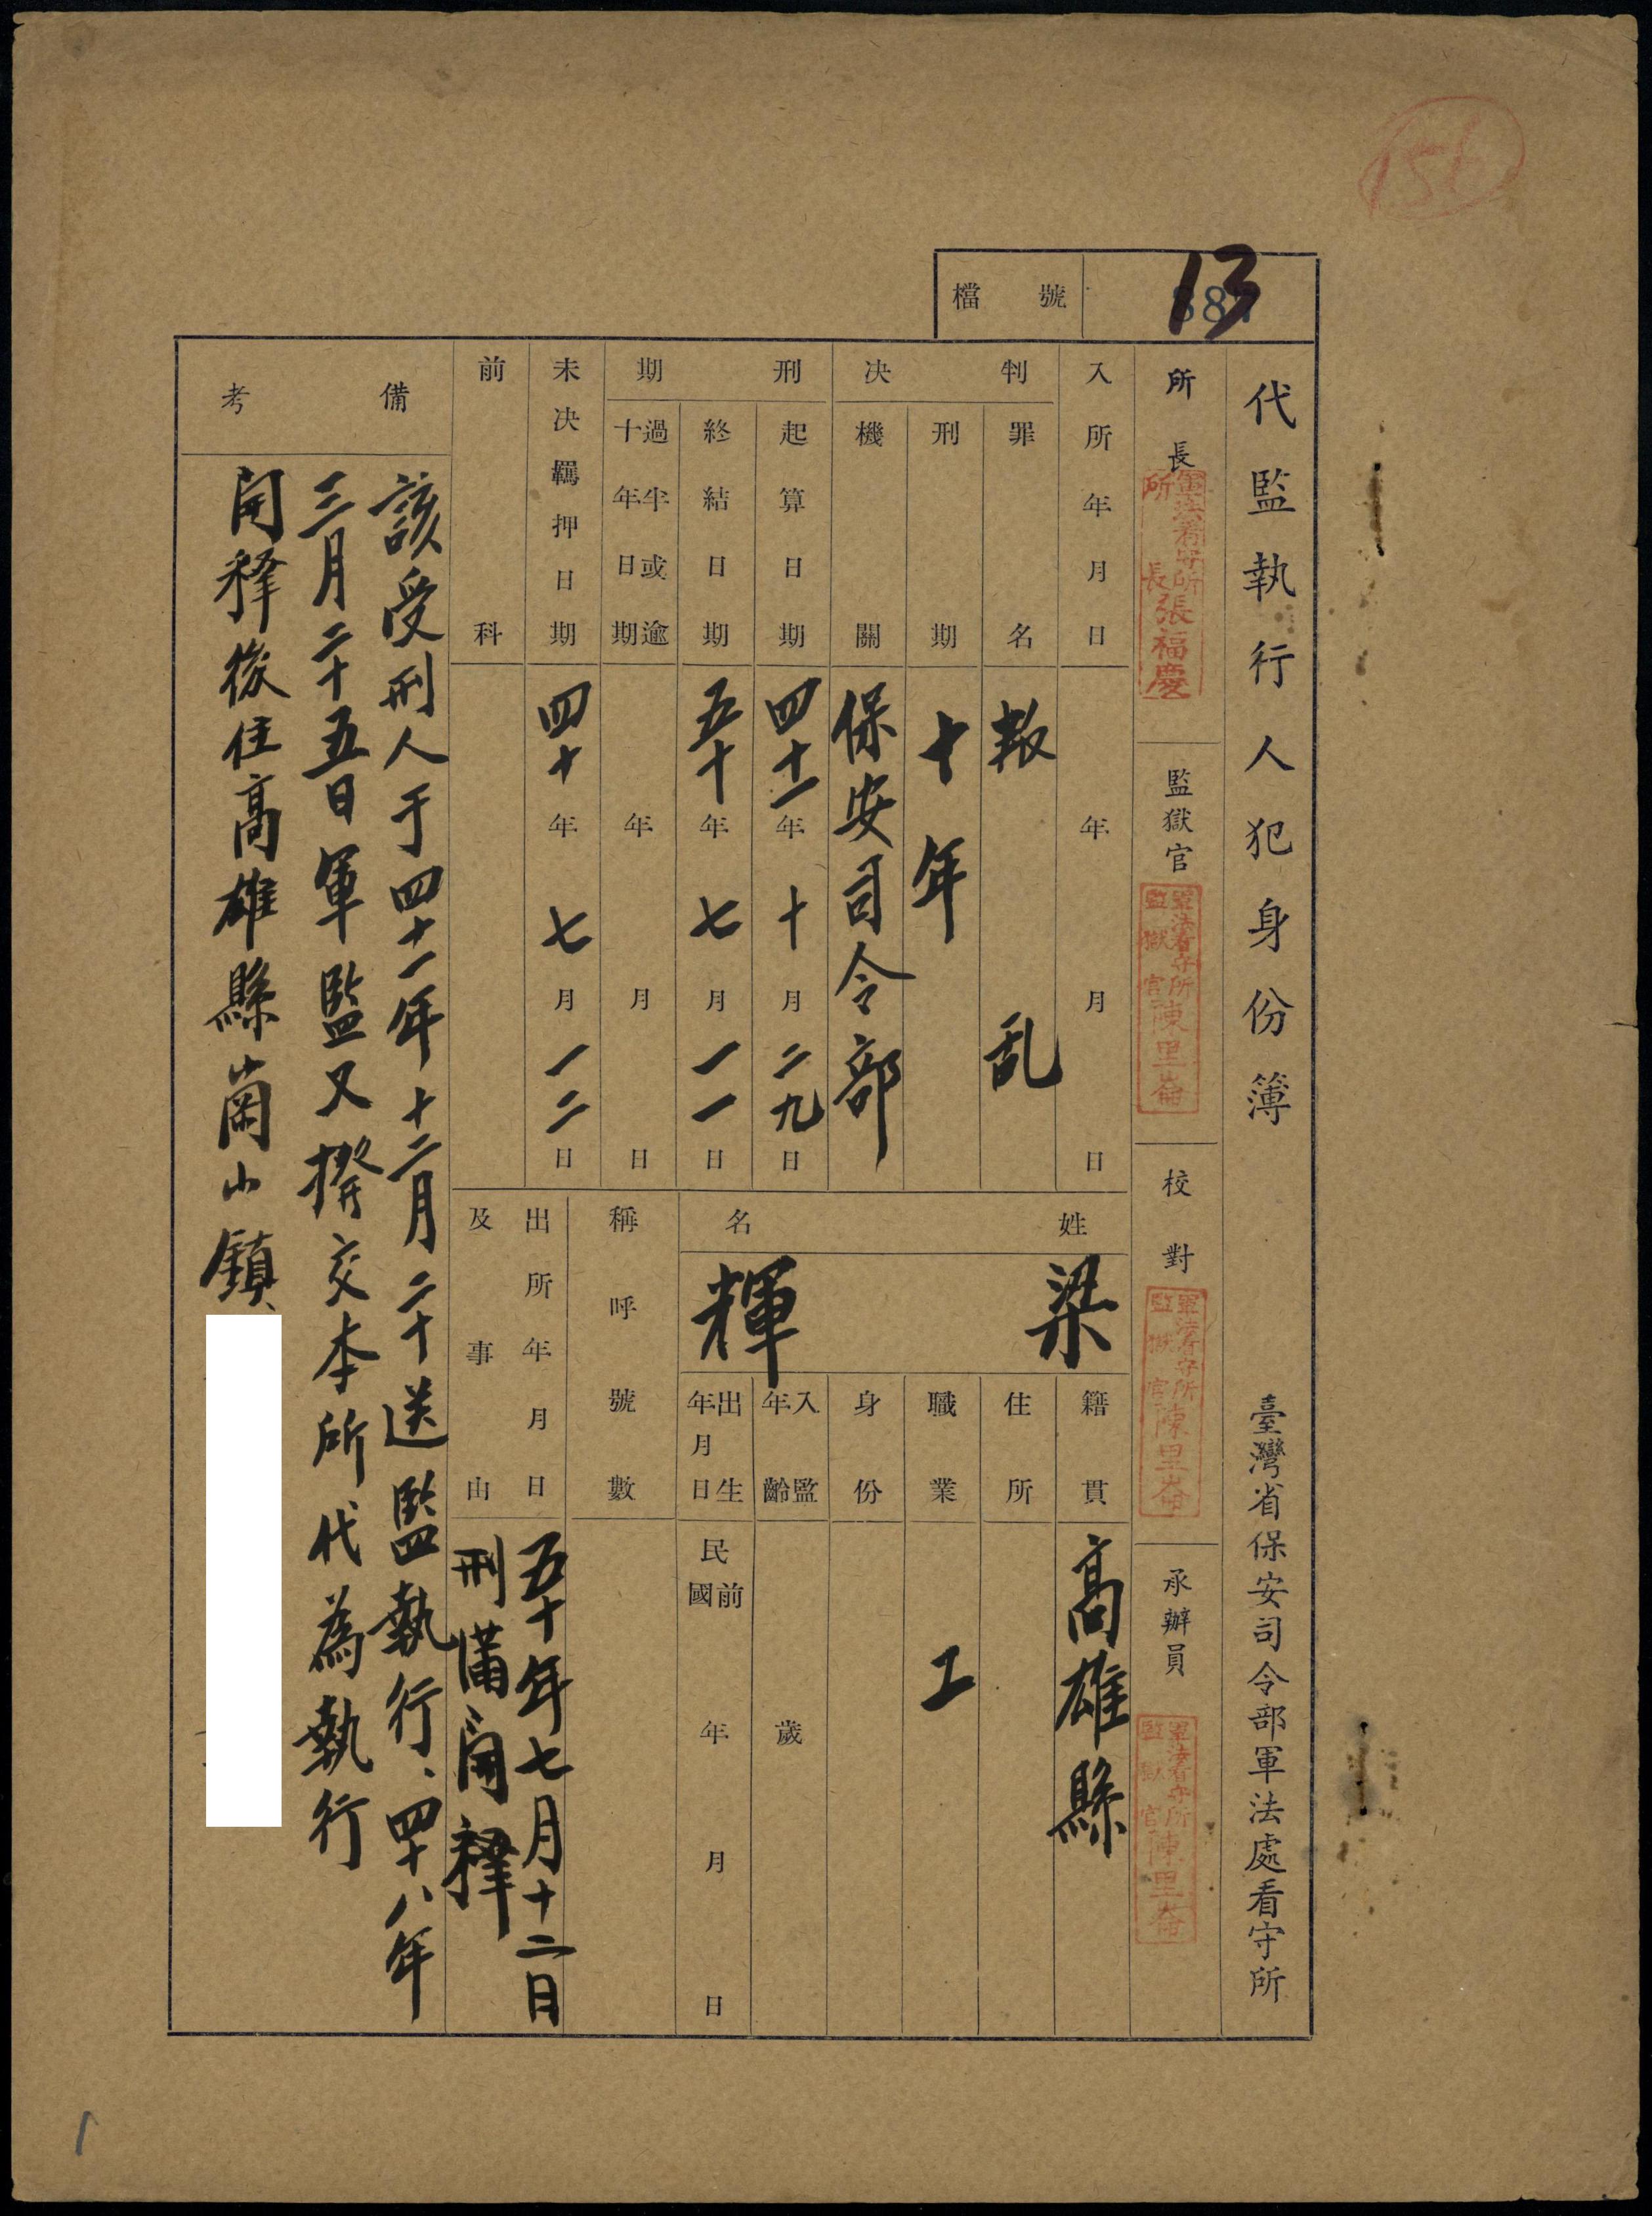 156
檔號
13
代監執行人犯身份簿
臺灣省保安司令部軍法處看守所
所長
軍法看守所所長張福慶
監獄官
軍法看守所監獄官陳里崙
校對
軍法看守所監獄官陳里崙
承辦員
軍法看守所監獄官陳里崙
入所年月日
年月日
判決
罪名
叛乱
刑期
十年
機關
保安司令部
刑期
起算日期
四十一年十月二九日
終結日期
五十年七月一一日
過半或逾十年日期
年月日
未決羈押日期
四十年七月一二日
前科
姓名
梁輝
籍貫
高雄縣
住所
職業
工
身份
入監年齡
歲
出生年月日
民國前
年月日
稱呼號數
出所年月日及事由
五十年七月十二日
刑滿開释
備考
該受刑人于四十一年十二月二十送監執行、四十八年
三月二十五日軍監又撥交本所代為執行
開释後住高雄縣崗山鎮